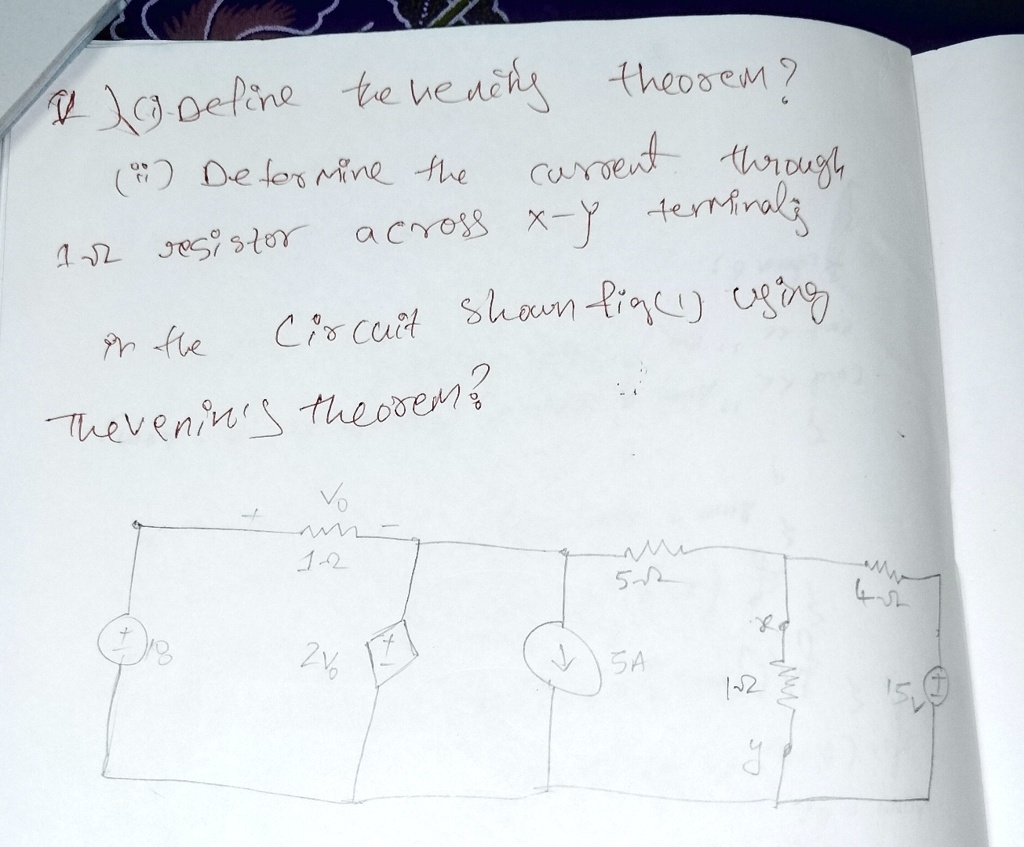 (i) Define thevenin's theorem?
(ii) Determine the current through
1Ω resistor across x-y terminals
in the Circuit shown fig(1) using
Thevenin's theorem?
+ V₀ -
1Ω
5Ω
4Ω
+
-
18
2V₀
+
-
5A
x
1Ω
y
15V
+
-